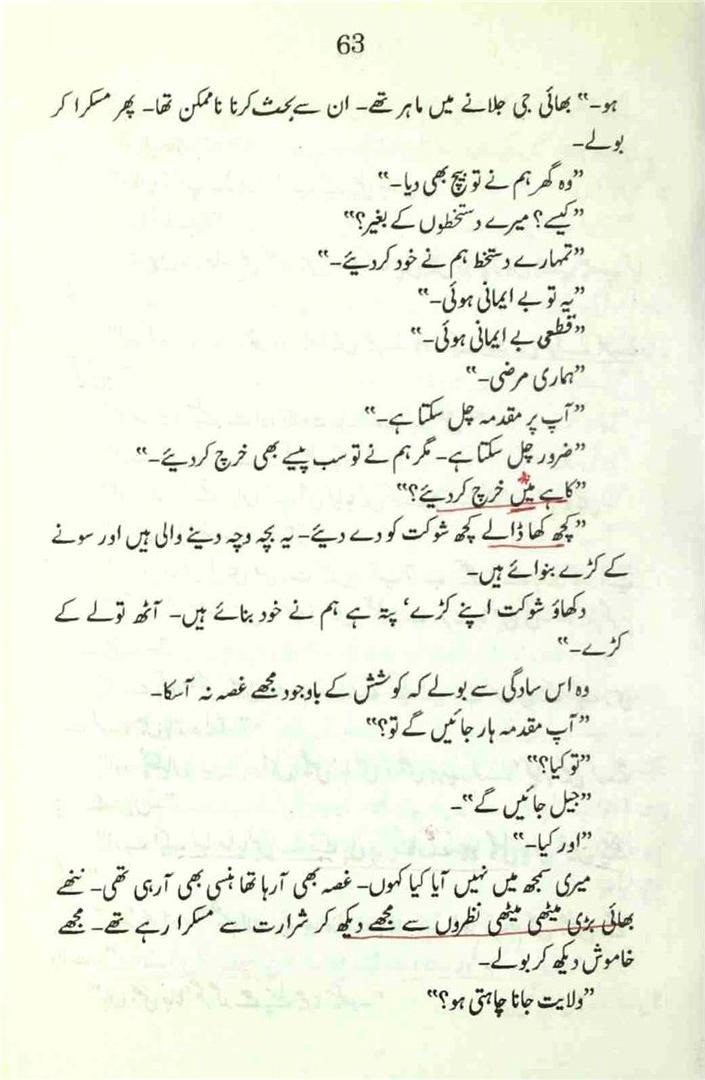 63
ہو۔“ بھائی جی جلانے میں ماہر تھے۔ ان سے بحث کرنا ناممکن تھا۔ پھر مسکرا کر
بولے۔
”وہ گھر ہم نے تو بیچ بھی دیا۔“
”کیسے؟ میرے دستخطوں کے بغیر؟“
”تمہارے دستخط ہم نے خود کردیئے۔“
”یہ تو بے ایمانی ہوئی۔“
”قطعی بے ایمانی ہوئی۔“
”ہماری مرضی۔“
”آپ پر مقدمہ چل سکتا ہے۔“
”ضرور چل سکتا ہے۔ مگر ہم نے تو سب پیسے بھی خرچ کردیئے۔“
”کاہے میں خرچ کردیئے؟“
”کچھ کھا ڈالے کچھ شوکت کو دے دیئے۔ یہ بچہ وچہ دینے والی ہیں اور سونے
کے کڑے بنوائے ہیں۔
دکھاؤ شوکت اپنے کڑے‘ پتہ ہے ہم نے خود بنائے ہیں۔ آٹھ تولے کے
کڑے۔“
وہ اس سادگی سے بولے کہ کوشش کے باوجود مجھے غصہ نہ آسکا۔
”آپ مقدمہ ہار جائیں گے تو؟“
”تو کیا؟“
”جیل جائیں گے“۔
”اور کیا۔“
میری سمجھ میں نہیں آیا کیا کہوں۔ غصہ بھی آرہا تھا ہنسی بھی آرہی تھی۔ ننھے
بھائی بڑی میٹھی میٹھی نظروں سے مجھے دیکھ کر شرارت سے مسکرا رہے تھے۔ مجھے
خاموش دیکھ کر بولے۔
”ولایت جانا چاہتی ہو؟“